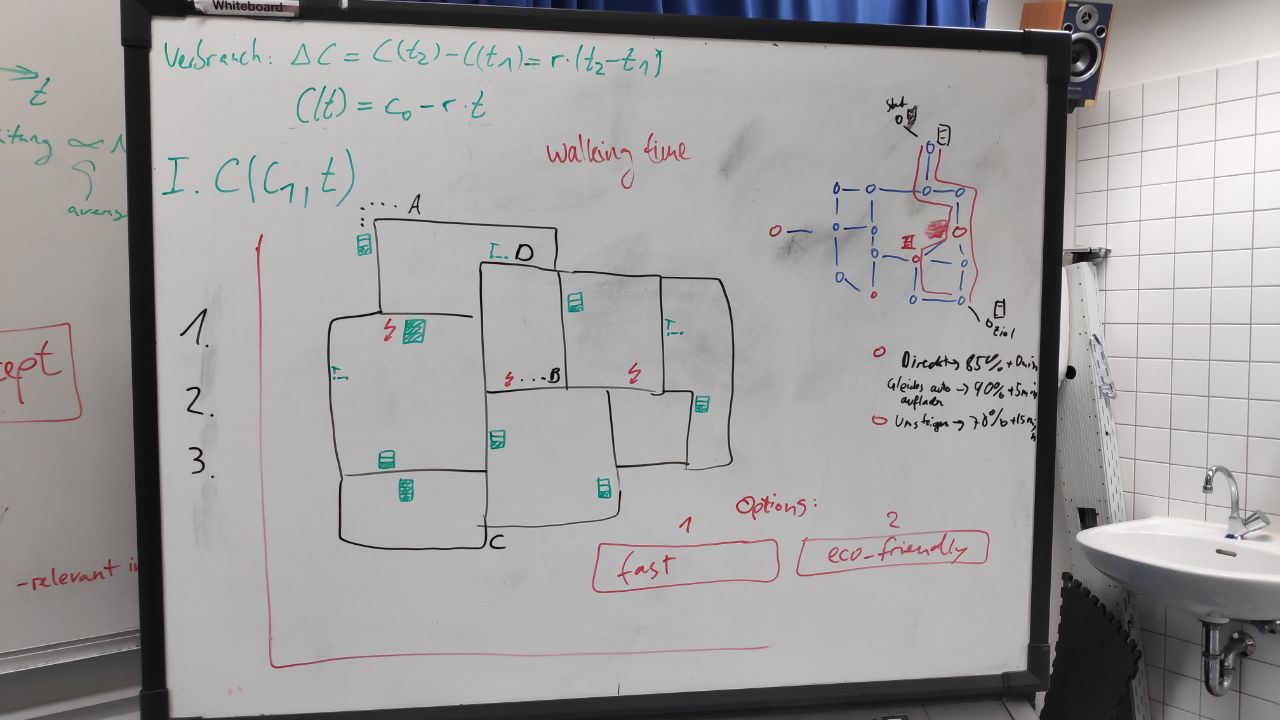 Whiteboard
Verbrauch: ΔC = C(t₂)-C(t₁) = r·(t₂-t₁)
C(t) = c₀ - r·t
t
∝
I. C(C₁, t)
walking time
Start
A
I... D
1.
I...
I...
2.
... B
3.
C
Ziel
Direkt → 85% + 0min
Gleiches auto → 90% + 5min
aufladen
Umsteigen → 70% + 15min
Options:
1
2
fast
eco-friendly
ept
-relevant in